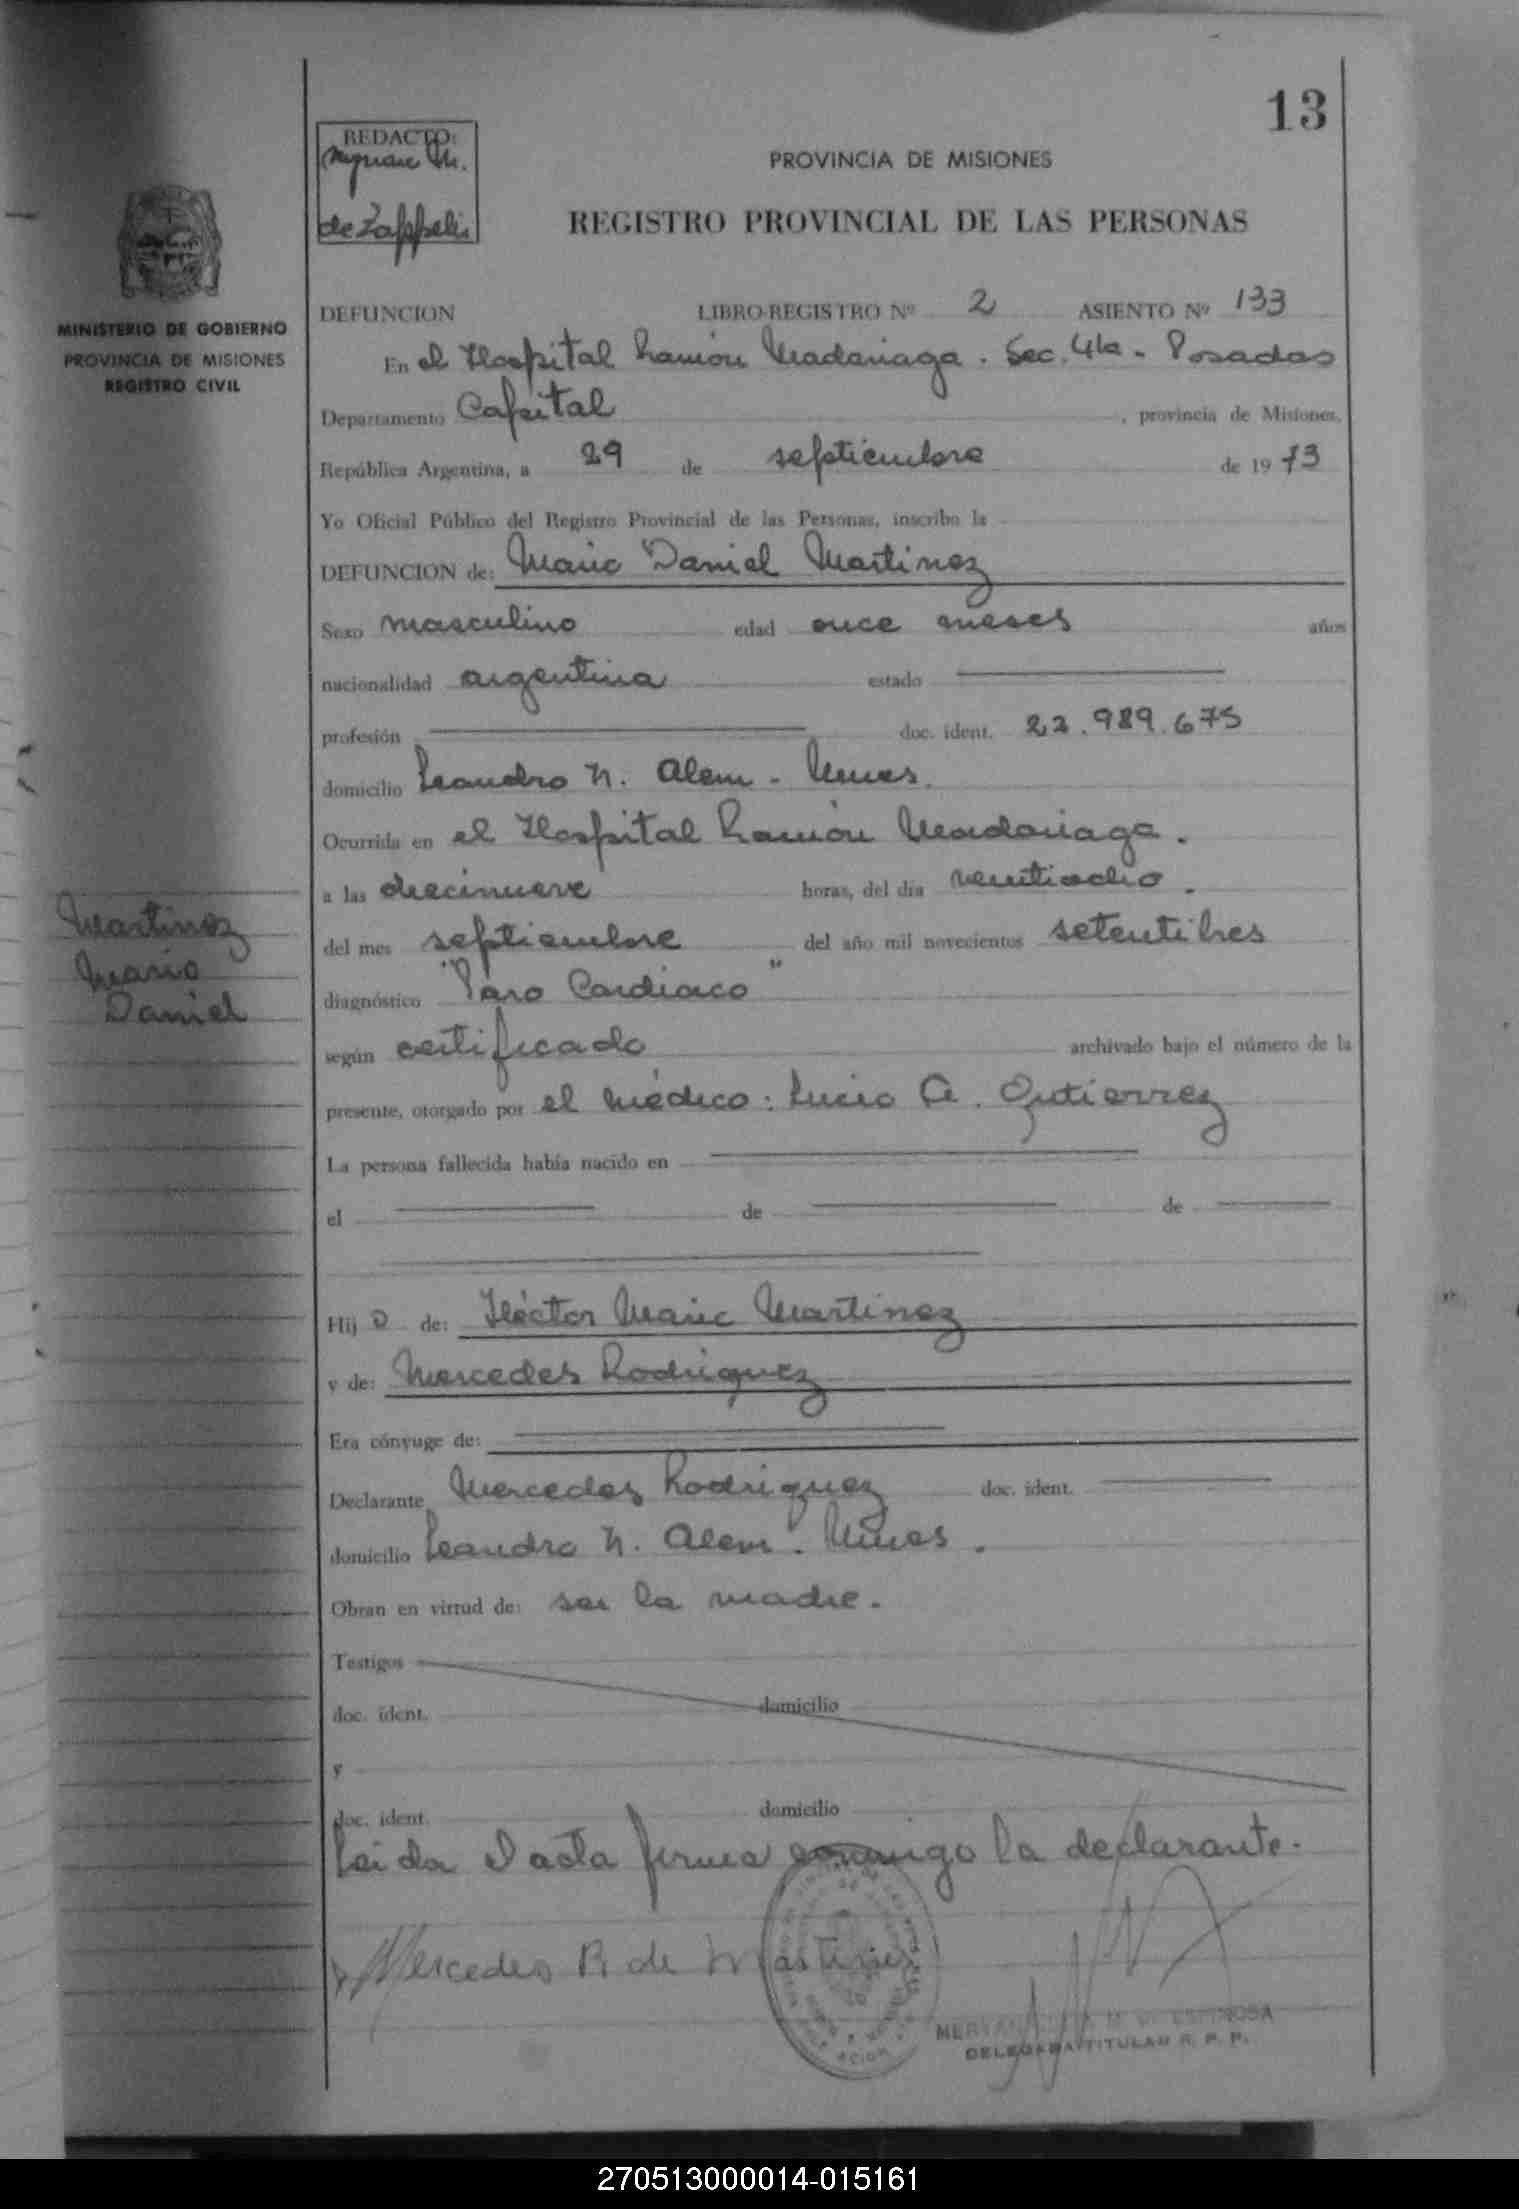 13
REDACTO:
Myrian M.
de Zappelli
PROVINCIA DE MISIONES
REGISTRO PROVINCIAL DE LAS PERSONAS
MINISTERIO DE GOBIERNO
PROVINCIA DE MISIONES
REGISTRO CIVIL
DEFUNCION LIBRO-REGISTRO Nº 2 ASIENTO Nº 133
En el Hospital Ramón Madariaga. Sec. 4ta - Posadas
Departamento Capital, provincia de Misiones,
República Argentina, a 29 de septiembre de 1973
Yo Oficial Público del Registro Provincial de las Personas, inscribo la
DEFUNCION de: Mario Daniel Martinez
Sexo masculino edad once meses años
nacionalidad argentina estado
profesión doc. ident. 22.989.675
domicilio Leandro N. Alem - Mnes.
Ocurrida en el Hospital Ramón Madariaga.
a las diecinueve horas, del día veintiocho.
del mes septiembre del año mil novecientos setentitres
diagnóstico "Paro Cardiaco"
según certificado archivado bajo el número de la
presente, otorgado por el médico: Lucio A. Gutierrez
La persona fallecida había nacido en
el de de
Hijo de: Héctor Mario Martinez
y de: Mercedes Rodriguez
Era cónyuge de:
Declarante Mercedes Rodriguez doc. ident.
domicilio Leandro N. Alem. Mnes.
Obran en virtud de: ser la madre.
Testigos
doc. ident. domicilio
y
doc. ident. domicilio
Leida el acta firma conmigo la declarante.
Mercedes R de Martinez
ESPINOSA
DELEGADA TITULAR R. P. P.
Martinez
Mario
Daniel
270513000014-015161